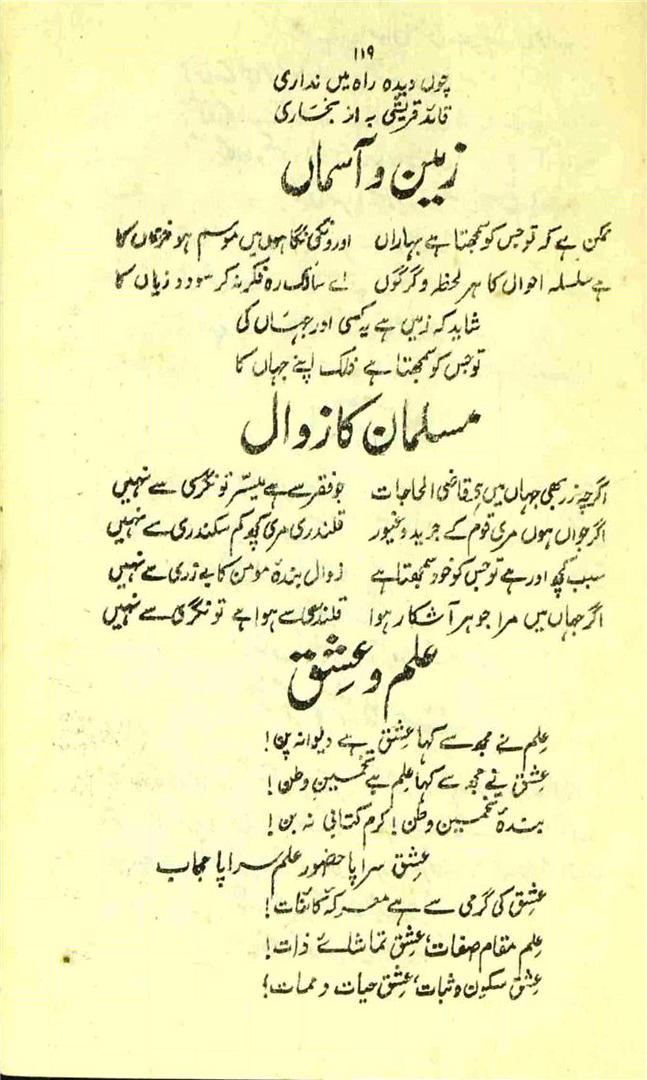 ۱۱۹
چوں دیدہ راہ میں نداری
قائد قریشی بہ از بخاری
زمین و آسماں
ممکن ہے کہ تو جس کو سمجھتا ہے بہاراں اوروں کی نگاہوں میں موسم ہو خزاں کا
ہے سلسلہ احوال کا ہر لحظہ دگرگوں اے سالک رہ فکر نہ کر سود و زیاں کا
شاید کہ زمیں ہے یہ کسی اور جہاں کی
تو جس کو سمجھتا ہے فلک اپنے جہاں کا
مسلمان کا زوال
اگرچہ زر بھی جہاں میں ہے قاضی الحاجات جو فقر سے ہے میسر تو نگری سے نہیں
اگر جواں ہوں مری قوم کے جرید و غیور قلندری مری کچھ کم سکندری سے نہیں
سبب کچھ اور ہے تو جس کو خود سمجھتا ہے زوال بندۂ مومن کا بے زری سے نہیں
اگر جہاں میں مرا جوہر آشکار ہوا قلندری سے ہوا ہے تونگری سے نہیں
علم و عشق
علم نے مجھ سے کہا عشق ہے دیوانہ پن!
عشق نے مجھ سے کہا علم ہے تخمین وطن!
بندۂ تخمین وطن! کرم کتابی نہ بن!
عشق سراپا حضور علم سراپا حجاب
عشق کی گرمی سے ہے معرکۂ کائنات!
علم مقام صفات، عشق تماشائے ذات!
عشق سکون و ثبات، عشق حیات و ممات؛